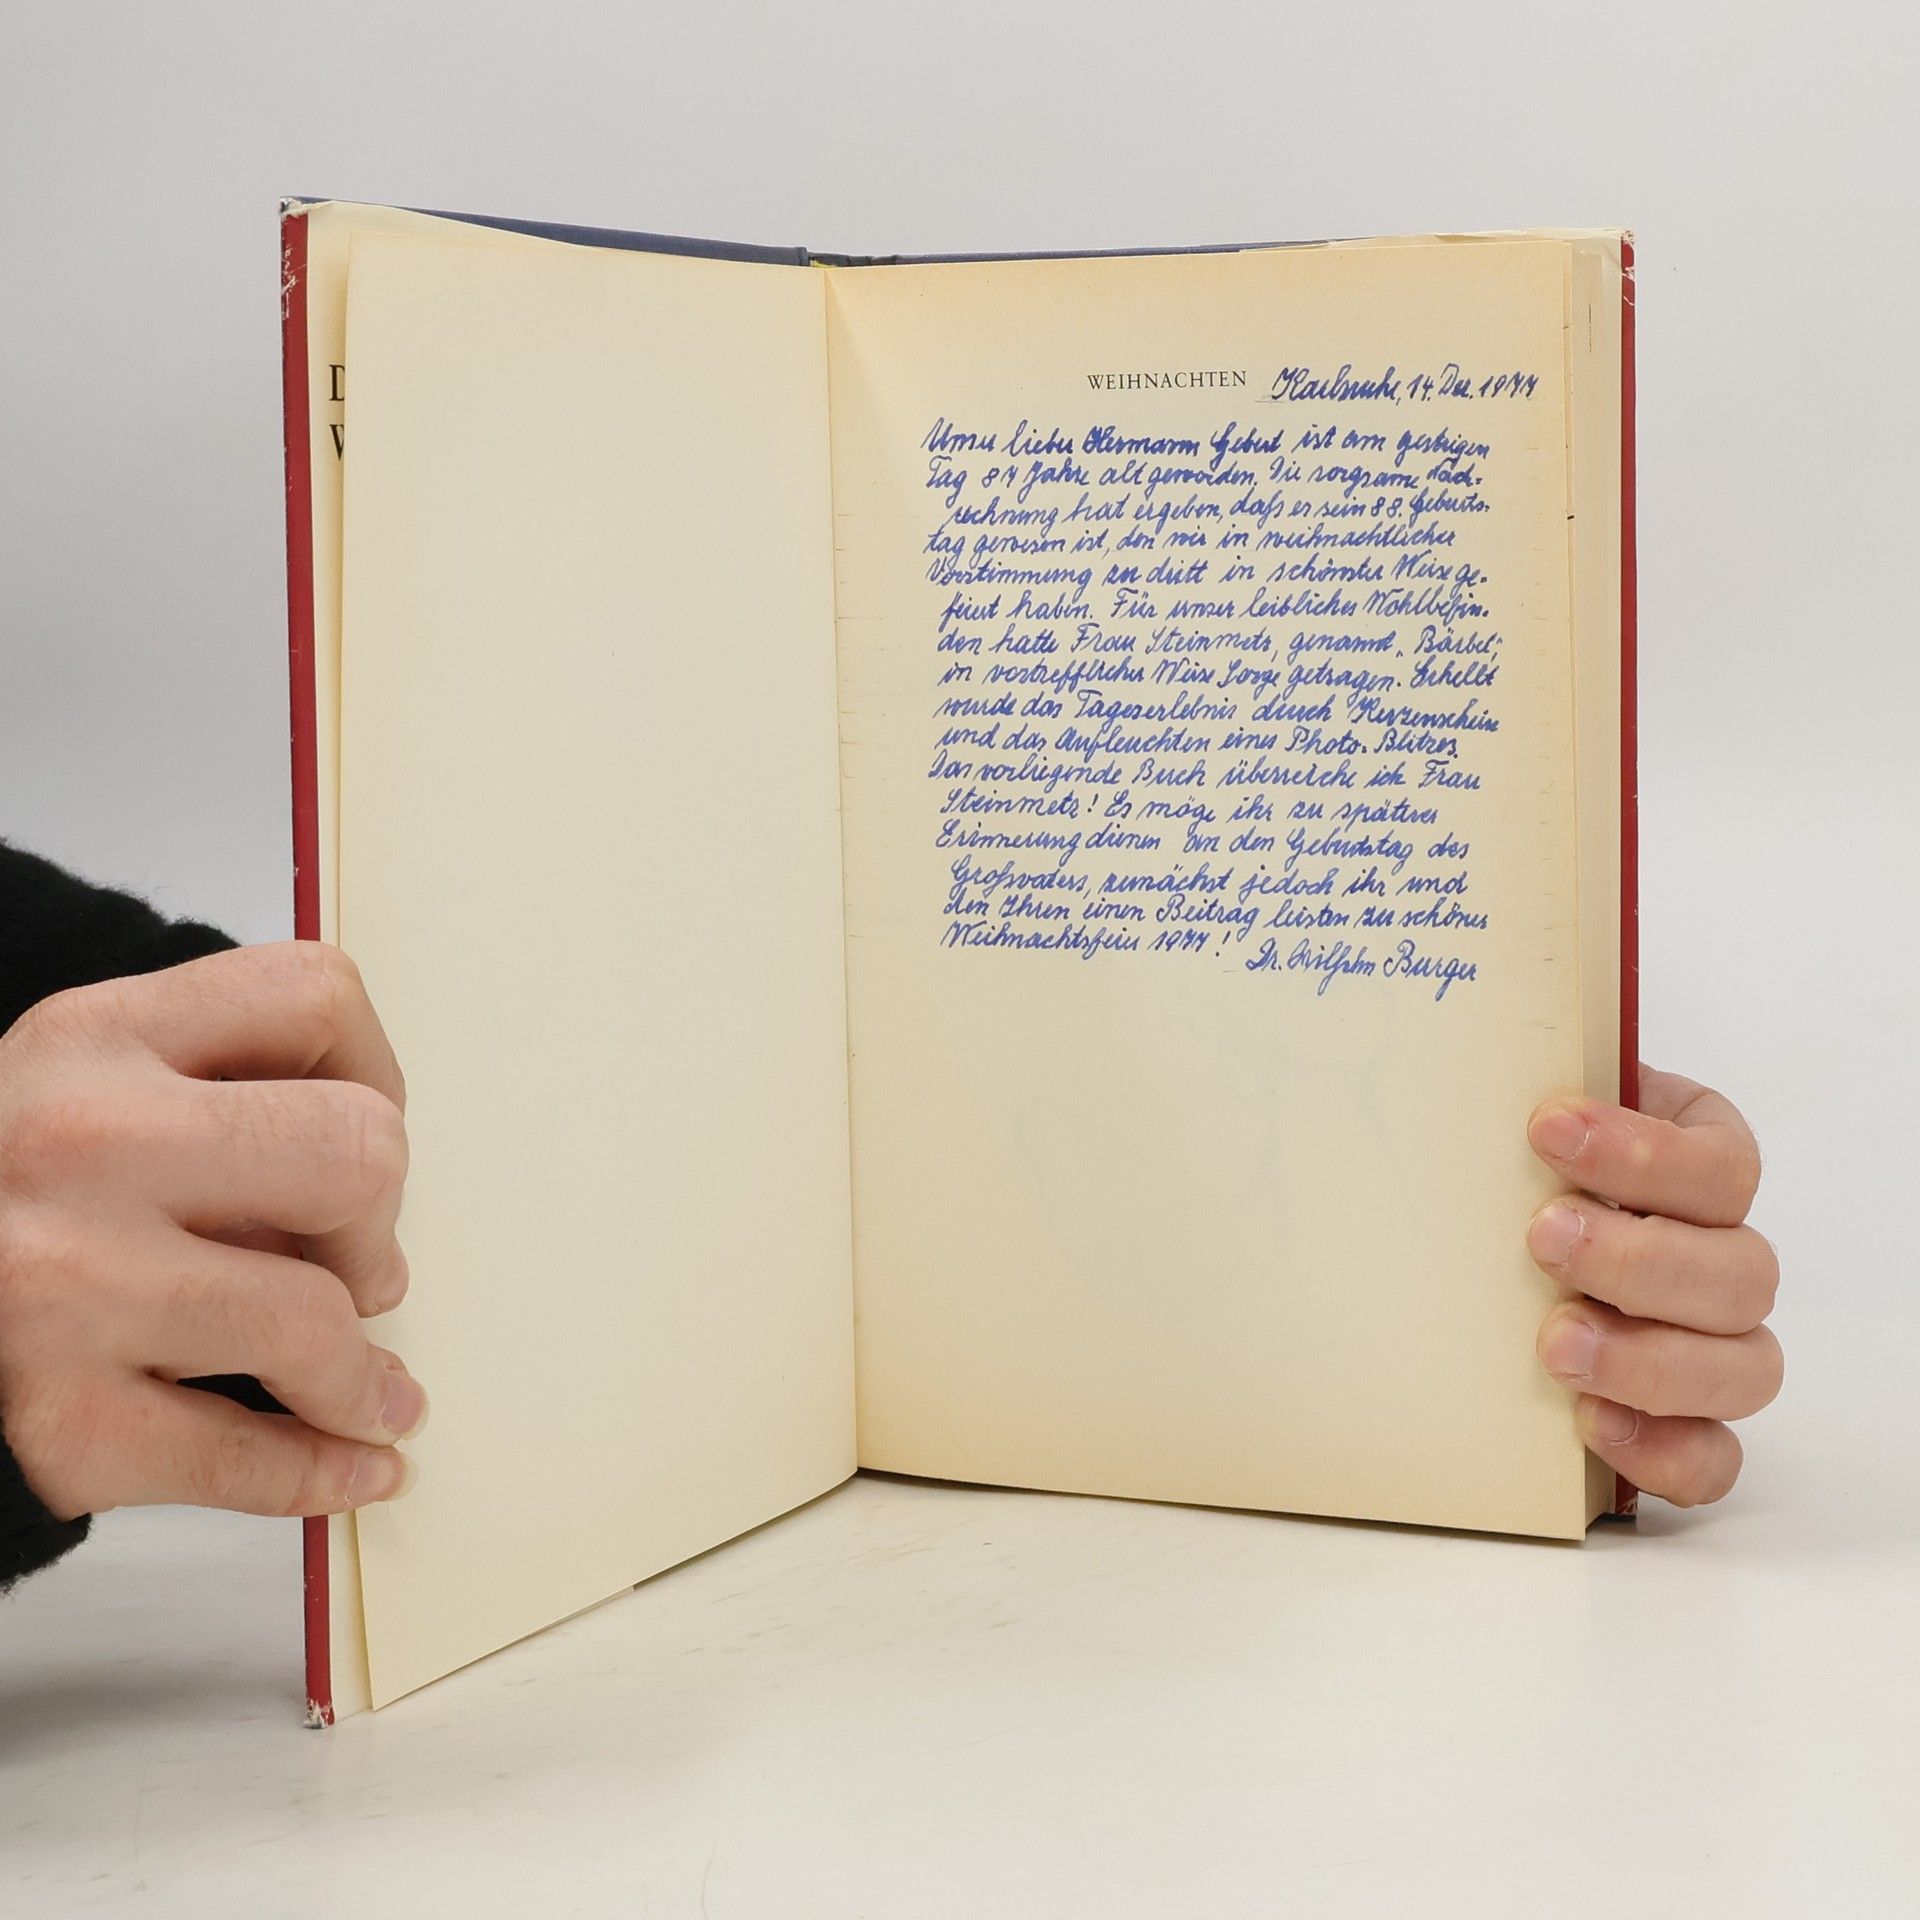 D
W
WEIHNACHTEN Karlsruhe, 14. Dez. 1977
Unser lieber Hermann Gebert ist am gestrigen
Tag 87 Jahre alt geworden. Die sorgsame Nach-
rechnung hat ergeben, daß er sein 88. Geburts-
tag gewesen ist, den wir in weihnachtlicher
Vorstimmung zu dritt in schönster Weise ge-
feiert haben. Für unser leibliches Wohlbefin-
den hatte Frau Steinmetz, genannt „Bärbel“,
in vortrefflicher Weise Sorge getragen. Erhellt
wurde das Tageserlebnis durch Kerzenschein
und das Aufleuchten eines Photo-Blitzes.
Das vorliegende Buch überreiche ich Frau
Steinmetz! Es möge ihr zu späterer
Erinnerung dienen an den Geburtstag des
Großvaters, zunächst jedoch ihr und
den Ihren einen Beitrag leisten zu schöner
Weihnachtsfeier 1977!
Dr. Wilhelm Burger